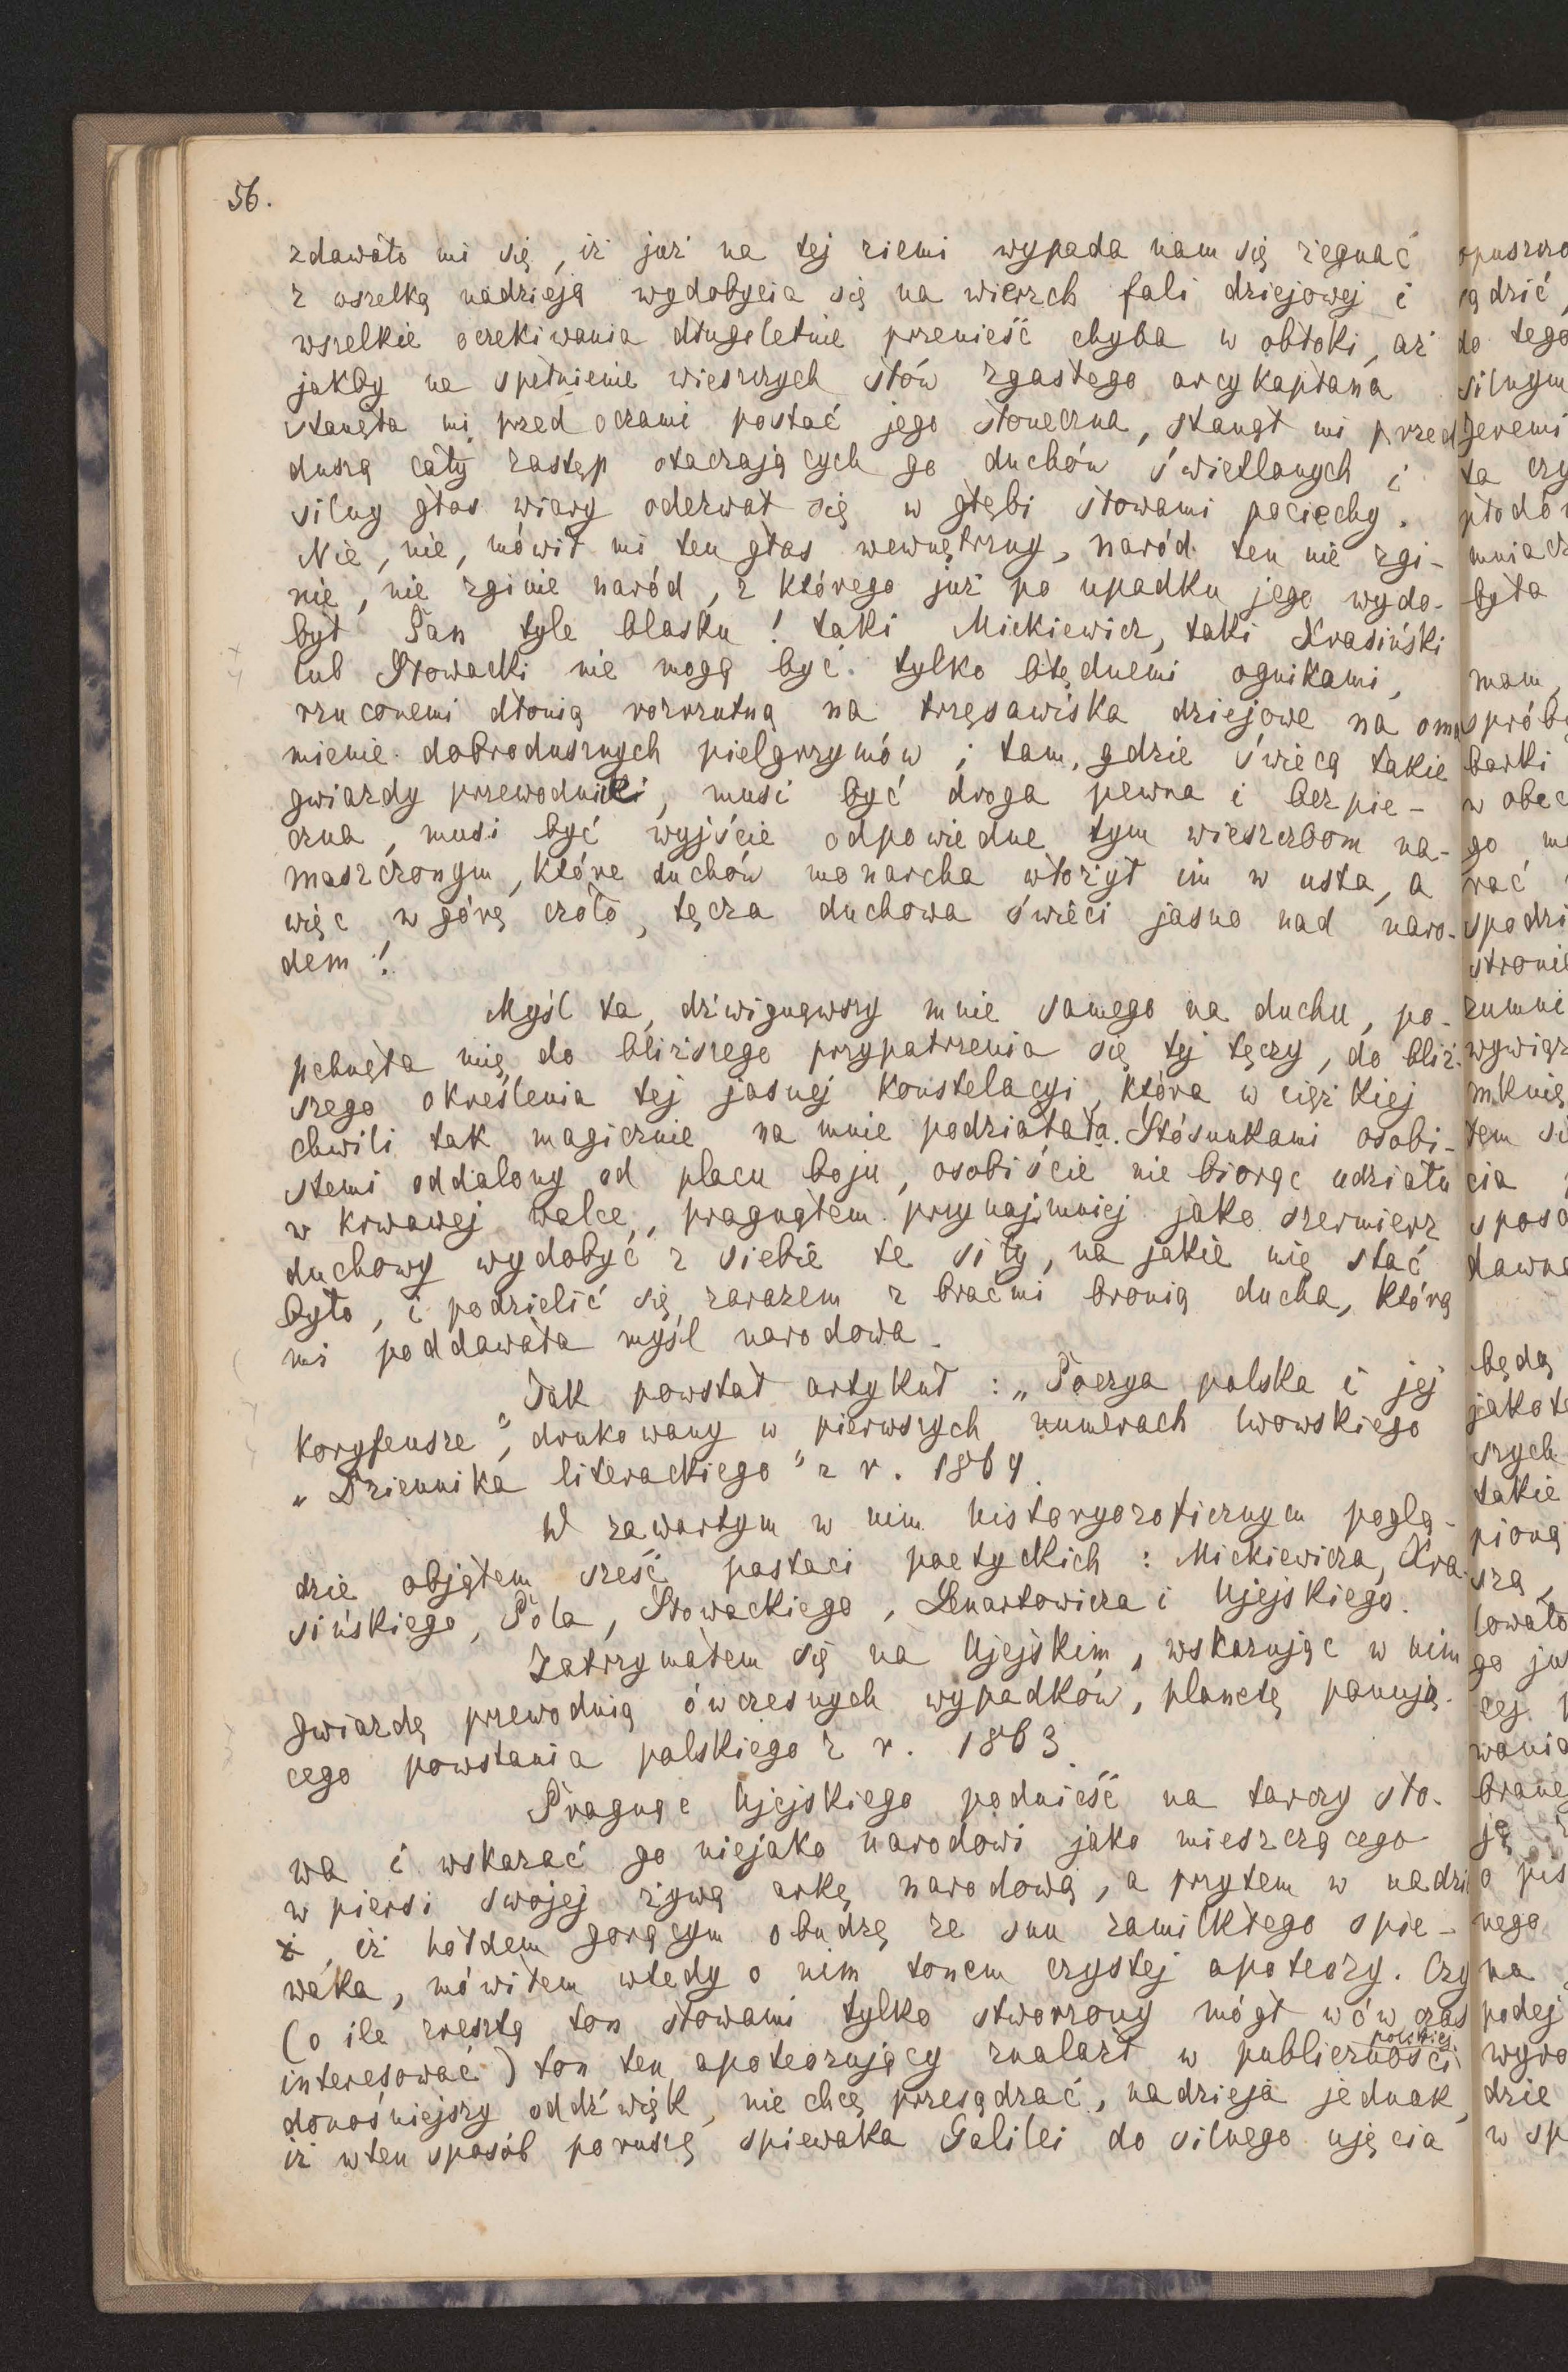 56.
zdawało mi się, iż już na tej ziemi wypada nam się żegnać
z wszelką nadzieją wydobycia się na wierzch fali dziejowej i
wszelkie oczekiwania długoletnie przenieść chyba w obłoki, aż
jakby na spełnienie wieszczych słów zgasłego arcykapłana
stanęła mi przed oczami postać jego słoneczna, stanął mi przed
duszą cały zastęp otaczających go duchów świetlanych i
silny głos wiary odezwał się w głębi słowami pociechy.
Nie, nie, mówił mi ten głos wewnętrzny, naród ten nie zgi-
nie, nie zginie naród, z którego już po upadku jego wydo-
był Pan tyle blasku! taki Mickiewicz, taki Krasiński
lub Słowacki nie mogą być tylko błędnemi ognikami,
rzuconemi dłonią rozrzutną na trzęsawiska dziejowe na oma
mienie dobrodusznych pielgrzymów; tam, gdzie świecą takie
gwiazdy przewodniki, musi być droga pewna i bezpie-
czna, musi być wyjście odpowiedne tym wieszczbom na-
maszczonym, które duchów monarcha włożył im w usta, a
więc w górę czoło, tęcza duchowa świeci jasno nad naro-
dem!
Myśl ta, dźwignąwszy mnie samego na duchu, po-
pchnęła mię do bliższego przypatrzenia się tej tęczy, do bliż-
szego określenia tej jasnej konstelacyi, która w ciężkiej
chwili tak magicznie na mnie podziałała. Stósunkami osobi-
stemi oddalony od placu boju, osobiście nie biorąc udziału
w krwawej walce, pragnąłem przynajmniej jako szermierz
duchowy wydobyć z siebie te siły, na jakie mię stać
było, i podzielić się zarazem z braćmi bronią ducha, którą
mi poddawała myśl narodowa.
Tak powstał artykuł: „Poezya polska i jej
koryfeusze", drukowany w pierwszych numerach lwowskiego
„Dziennika literackiego" z r. 1864.
W zawartym w nim historyozoficznym poglą-
dzie objąłem sześć postaci poetyckich: Mickiewicza, Kra-
sińskiego, Pola, Słowackiego, Lenartowicza i Ujejskiego.
Zatrzymałem się na Ujejskim, wskazując w nim
gwiazdę przewodnią ówczesnych wypadków, planetę panują-
cego powstania polskiego z r. 1863.
Pragnąc Ujejskiego podnieść na tarczy sło-
wa i wskazać go niejako narodowi jako mieszczącego
w piersi swojej żywą arkę narodową, a przytem w nadzi
i, iż hołdem gorącym obudzę ze snu zamilkłego śpie-
waka, mówiłem wtedy o nim tonem czystej apoteozy. Czy
(o ile zresztą ton słowami tylko stworzony mógł wówczas
interesować) ton ten apoteozujący znalazł w publiczności polskiej
donośniejszy oddźwięk, nie chcę przesądzać, nadzieja jednak,
iż w ten sposób poruszę śpiewaka Galilei do silnego ujęcia